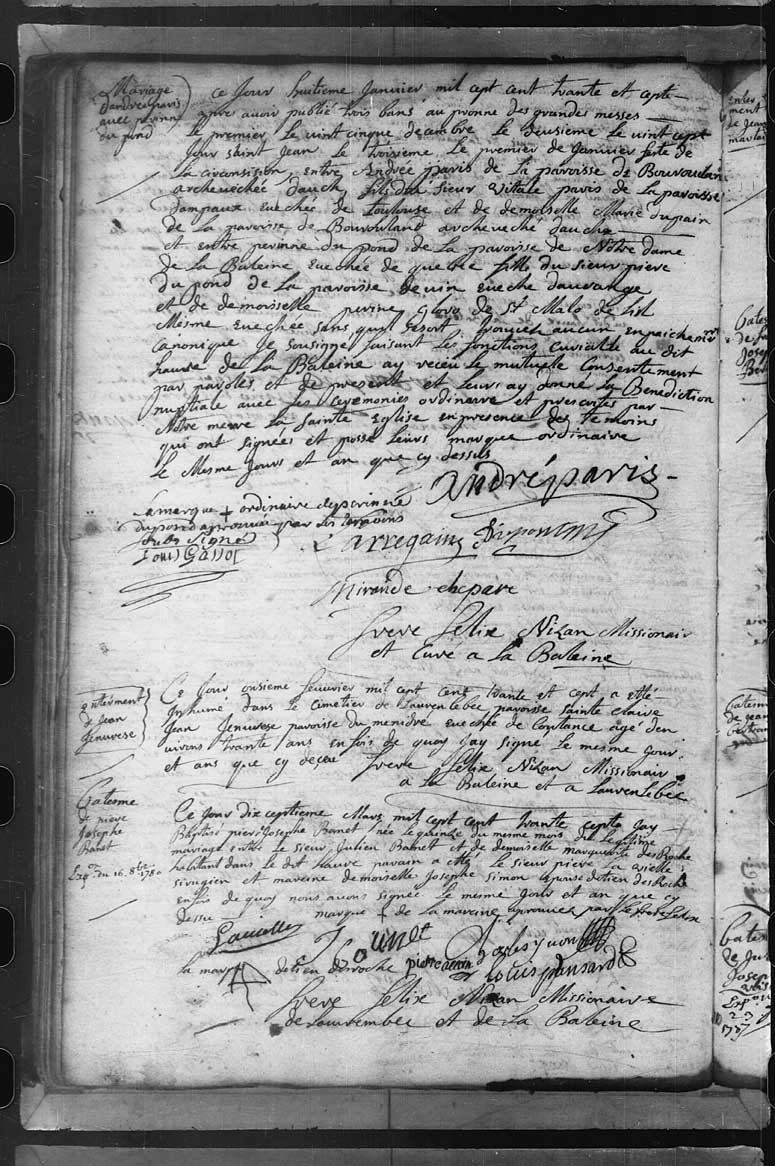 Mariage
dandré paris
avec perinne
du pond
ce Jour huitieme Janvier mil cept cent trante et cepte
apre avoir publié trois bans au pronne des grandes messes
Le premier le vint cinque decembre le deusieme le vint cept
Jour saint Jean Le troisieme Le premier de Janvier feste de
La circonsision entre Andrée paris de La paroisse de Bouvouland
archeuechée dauch, fils du sieur vitale paris de la paroisse
dampaux Eueché de toulouse et de demoiselle Marie dupain
de La paroisse de Bouvouland archeveche dauche
et entre perinne du pond de La paroisse de Notre dame
de La Baleine Eueché de quebec fille du sieur piere
du pond de La paroisse de vin eueche dauvange
et de demoisselle perine Glovo de St Malo de lit
Mesme Euechee sans quil Resort trouvéz aucun enpaichement
canonique Je sousigne faisant Les fonctions curiale au dit
havre de La Baleine ay receu le mutuele Consentement
par paroles et de presente et Leurs ay donne La Benediction
nuptiale avec Les ceremonies ordinerre et prescrites par
Notre merre La Sainte Eglise en presence des temoins
qui ont signées et posse leurs marque ordinaire
Le Mesme Jours et an que cy dessus
André paris
La marque + ordinaire de perinne
dupond aprouvée par les temoins
Signé
Louis Gassot
Larregain Duponcin
Mirande chepare
frere felix Nizan Missionair
et Cure a la Baleine
enterment
de Jean
Jenuvese
Ce Jour onsieme feuvrier mil cept cent trante et cept a etté
Inhumé dans le Cimetier de Laurenlebec paroisse Sainte claire
Jean Jenuvese paroisse du menidre Eueché de Contance age den
uirons trante ans enfois de quoy Jay signe Le mesme Jour
et ans que cy deceu frere felix Nizan Missionair
a La Baleine et a Laurenlebec
Bateme
de piere
Josephe
Banet
Exp.on du 16. 8bre 1780
Ce Jour dix ceptieme Mars mil cept cent trante cepte Jay
Baptisé piere Josephe Banet née le quinze du meme mois du Legitime
mariage entre Le sieur Julien Banet et de demoiselle marguerite des Roche
habitant dans Le dit havre parain a etté Le sieur piere La vielle
sirugien et mareine demoiselle Josephe Simon epouse detien des Roche
enfois de quoy nous avons signée Le mesme Jour et an que cy
dessu marque + de la mareine aprouvée par le frere felix
Lavielle
La marque detien desroche
Louis pansard
frere felix Nizan Missionaire
de Laurembec et de La Baleine
Enter
ment
de Jean
Batem
de
Josep
Batem
de Jean
Bertran
Batem
de Ju
Josep
Exp.on
23